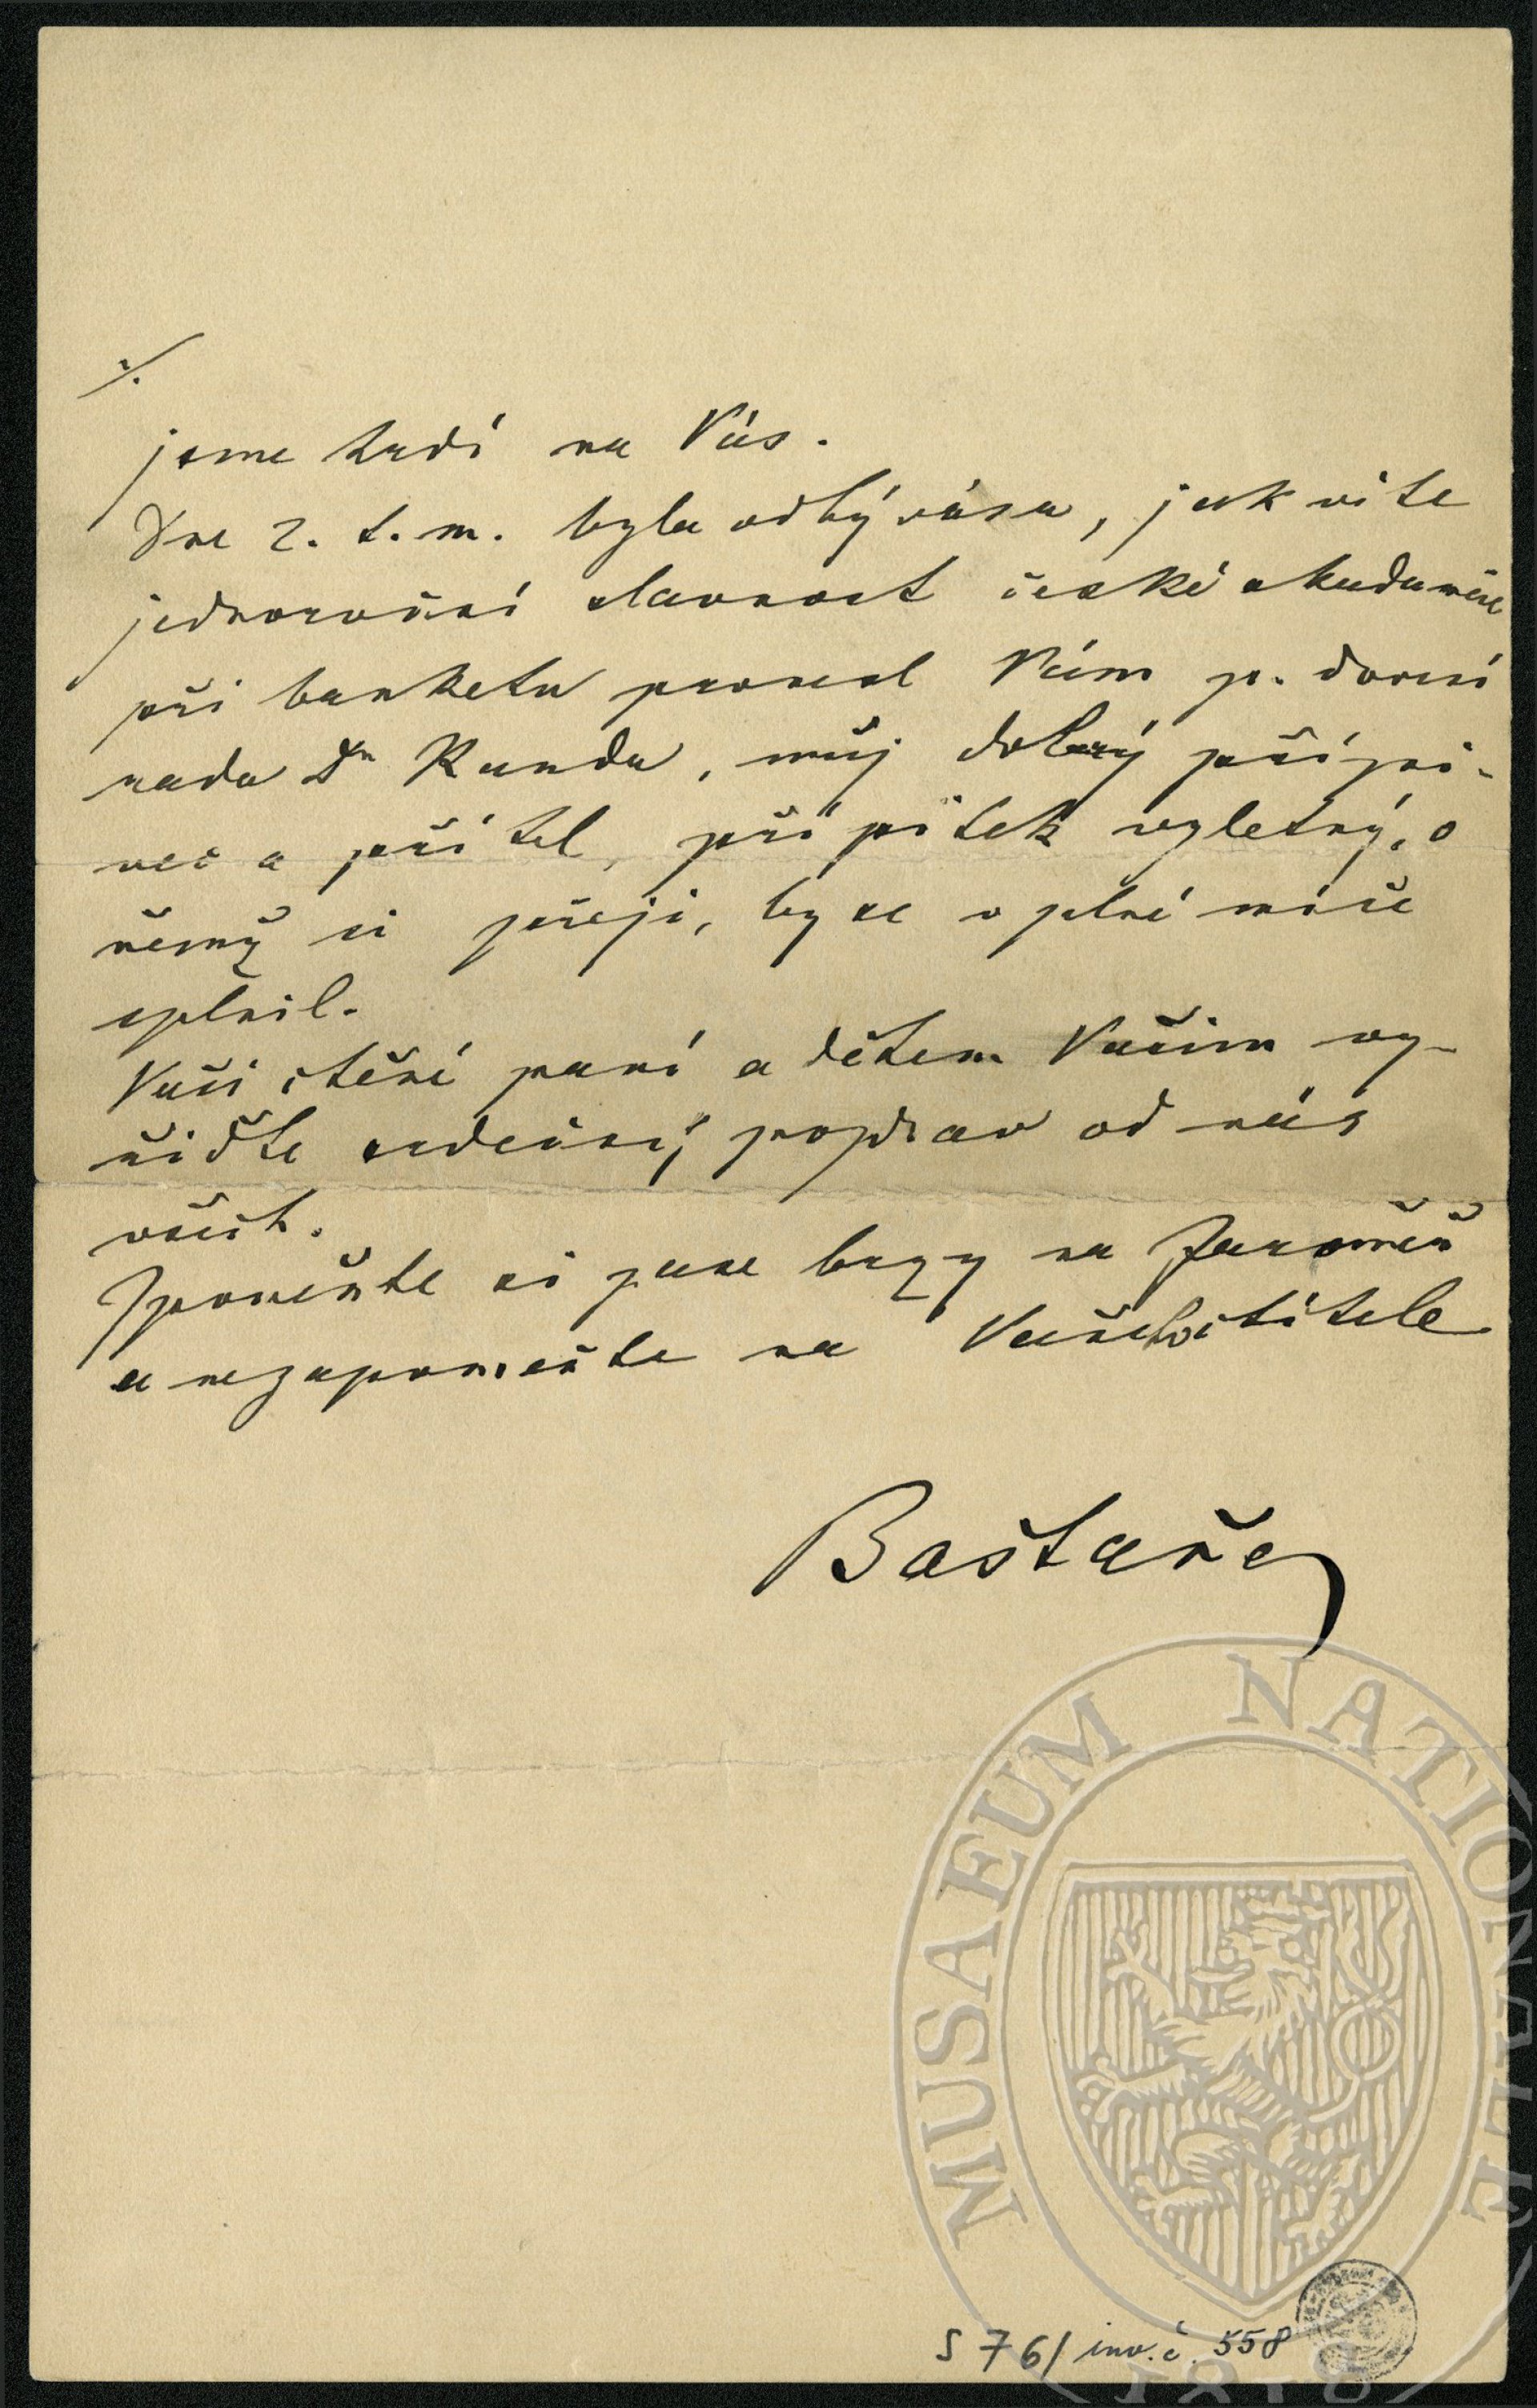 ./.
jsme hrdí na Vás.
Dne 2. t. m. byla odbývána, jak víte
jednoroční slavnost české akademie
při banketu pronesl Vám p. dvorní
rada Dr Randa, můj dobrý přízni-
vec a přítel, přípitek vzletný, o
němž si přeji, by se v plné míře
splnil.
Vaší ctěné paní a dětem Vašim vy-
řiďte srdečný pozdrav od nás
všech.
Zpomeňte si zase brzy na Jaroměř
a nezapomeňte na Vašeho ctitele
Baštaře
MUSAEUM NATIONALE
1818
S 76/ inv. č. 558